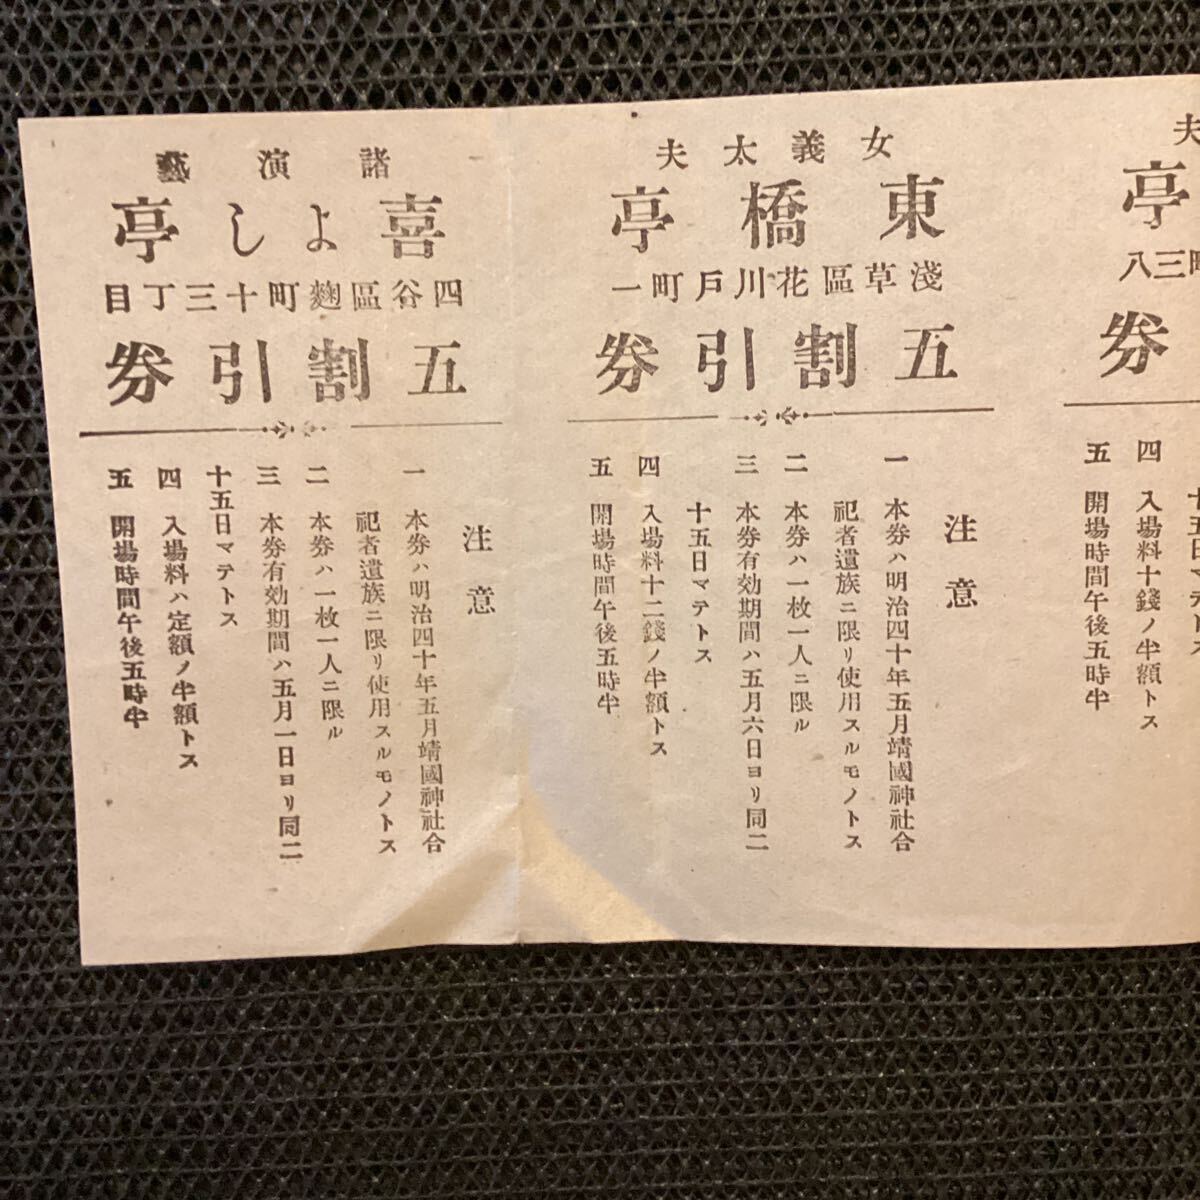 夫
亭
町三八
券
四 入場料十錢ノ半額トス
五 開場時間午後五時半
女義太夫
東橋亭
淺草區花川戸町一
五割引券
注意
一 本券ハ明治四十年五月靖國神社合
祀者遺族ニ限リ使用スルモノトス
二 本券ハ一枚一人ニ限ル
三 本券有効期間ハ五月六日ヨリ同二
十五日マテトス
四 入場料十二錢ノ半額トス
五 開場時間午後五時半
諸演藝
喜よし亭
四谷區麴町十三丁目
五割引券
注意
一 本券ハ明治四十年五月靖國神社合
祀者遺族ニ限リ使用スルモノトス
二 本券ハ一枚一人ニ限ル
三 本券有効期間ハ五月一日ヨリ同二
十五日マテトス
四 入場料ハ定額ノ半額トス
五 開場時間午後五時半